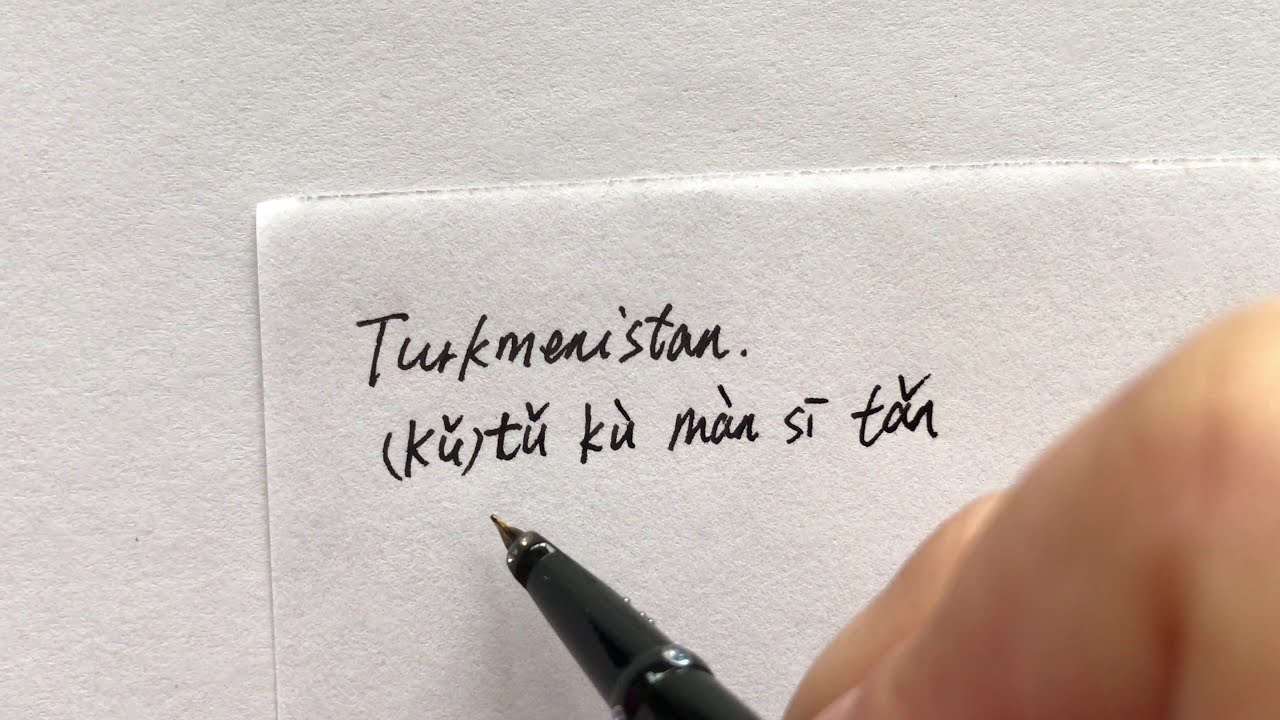 Turkmenistan.
(kǔ)tǔ kù màn sī tǎn